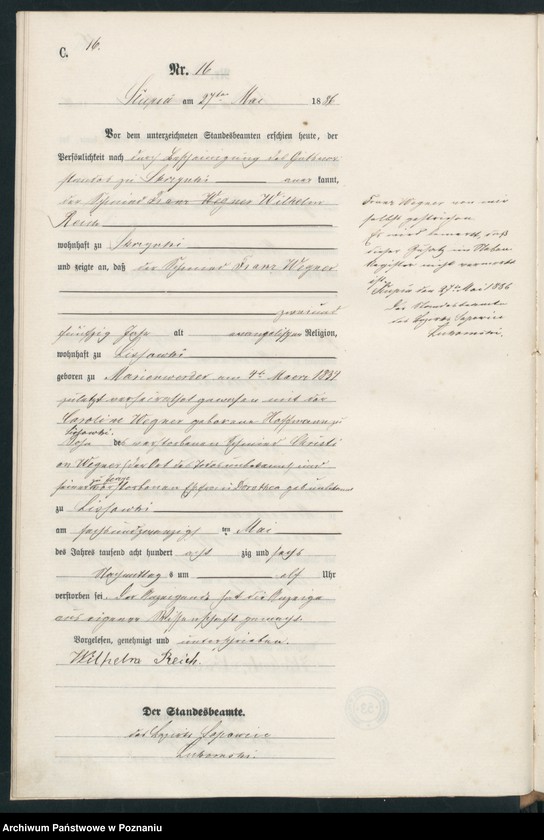 C. 16.
Nr. 16
Słupia am 27ten Mai 1886
Vor dem unterzeichneten Standesbeamten erschien heute, der
Persönlichkeit nach durch Bescheinigung des
zu Skrzynki aner kannt,
der Schmied Franz Wegner Wilhelm
Reich
wohnhaft zu Skrzynki
und zeigte an, daß der Schmied Franz Wegner
zweiund
fünfzig Jahr alt evangelischer Religion,
wohnhaft zu
geboren zu Marienwerder am 4t Maerz 1834
zuletzt verheirathet gewesen mit der
Caroline Wegner geborene Hoffmann zu
Sohn des verstorbenen Schmied Christi
an Wegner, der Ort des Todes unbekannt und
seiner verstorbenen Ehefrau Dorothea
zu
am sechsundzwanzig ten Mai
des Jahres tausend acht hundert acht zig und sechs
Nachmittag s um elf Uhr
verstorben sei. Der Anzeigende hat die Anzeige
aus eigener Wissenschaft gemacht.
Vorgelesen, genehmigt und unterschrieben.
Wilhelm Reich.
Der Standesbeamte.
des
Franz Wegner von mir
selbst gestrichen
Es wird bemerkt, daß
dieser Zusatz im Neben
Register nicht vermerkt
ist
Słupia den 27ten Mai 1886
Der Standesbeamte
des
Archiwum Państwowe w Poznaniu